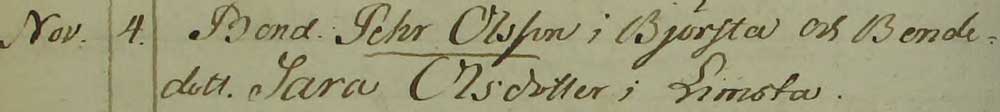 Nov. 4. Bond. Pehr Olsson i Björsta och Bonde-
dott. Sara Olsdotter i Limsta.